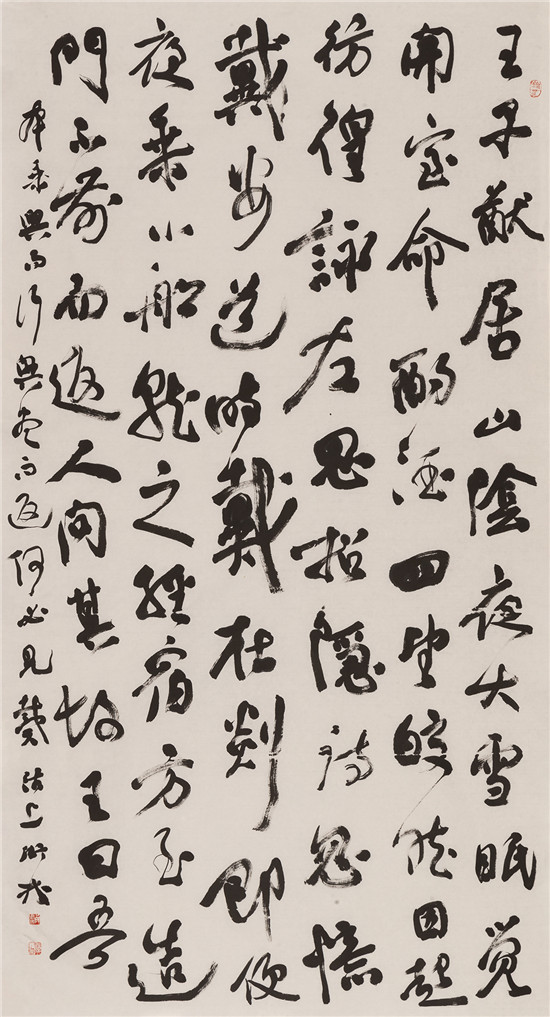 王子猷居山陰夜大雪眠覺
開室命酌酒四望皎然因起
彷徨詠左思招隱詩忽憶
戴安道時戴在剡即便
夜乘小船就之經宿方至造
門不前而返人問其故王曰吾
本乘興而行興盡而返何必見戴 沽上